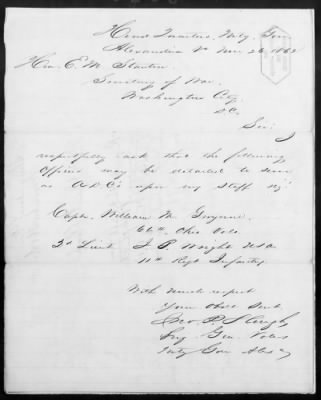 Head Quarters, Mily. Gov.
Alexandria Va 26 1862
Hon. E. M. Stanton
Secretary of War.
Washington City.
D.C.
Sir:
I
respectfully ask that the following
Officers may be detailed to serve
as A.D.C's upon my Staff viz:
Capt. William M. Gwynne.
66th. Ohio Vols.
2d Lieut J P Wright USA
11th Regt Infantry
With much respect
Your Obdt Servt
Jno. P. Slough
Brig. Gen. Vols
Mily Gov Alexa